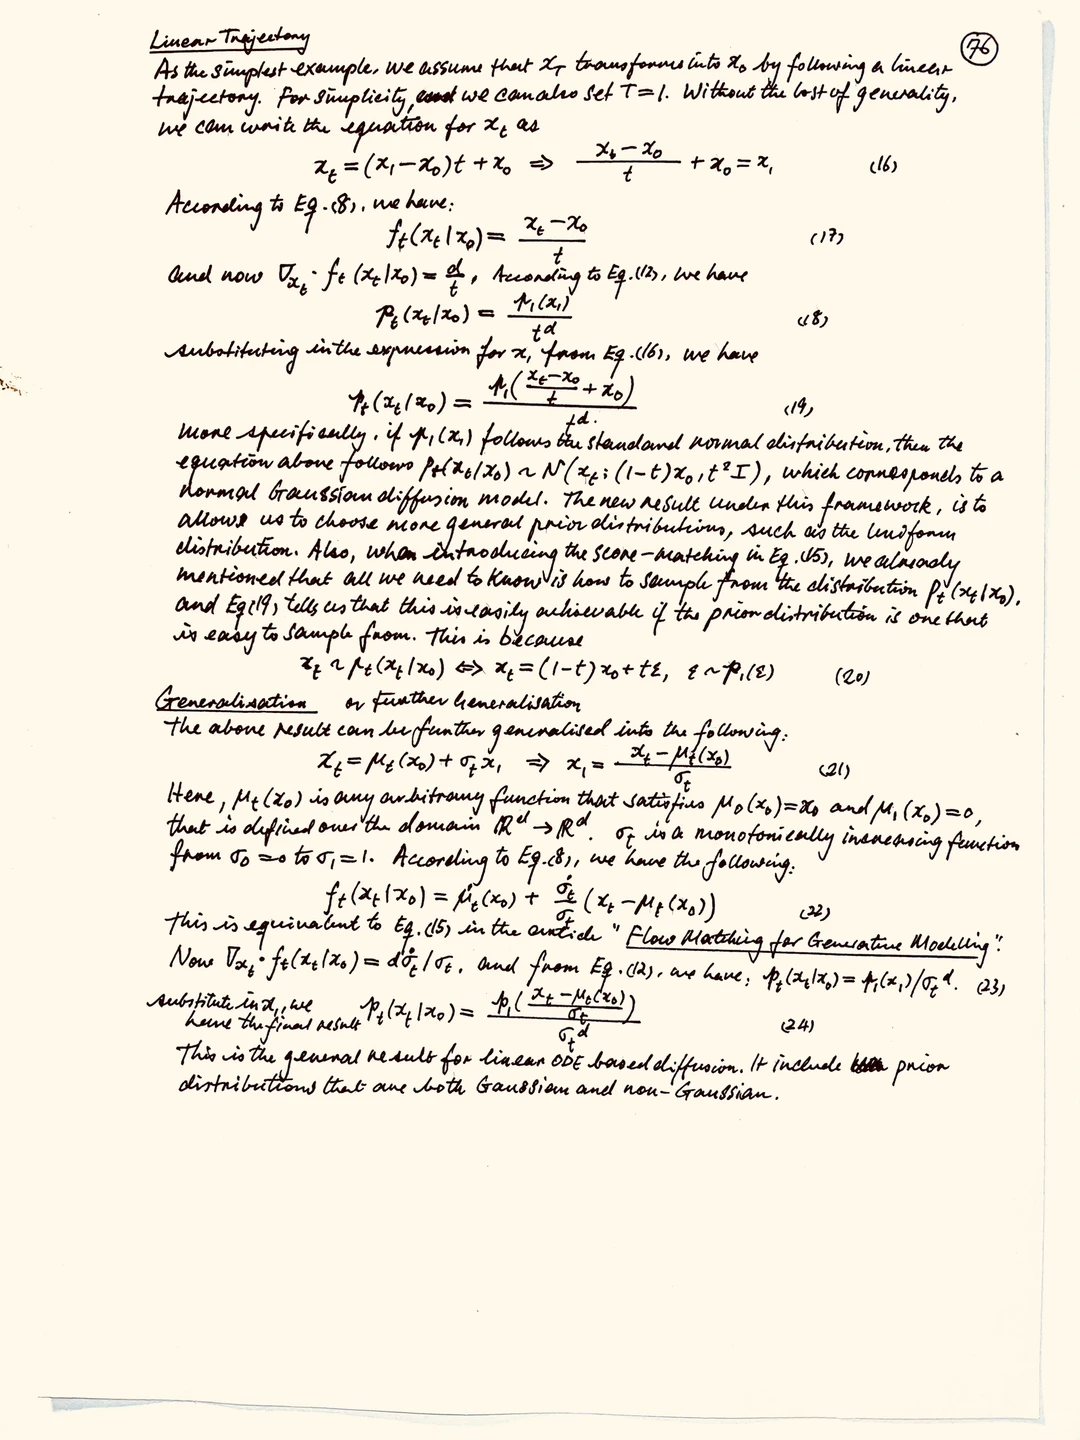 76
Linear Trajectory
As the simplest example, we assume that x_T transforms into x_0 by following a linear
trajectory. For simplicity, and we can also set T=1. Without the lost of generality,
we can write the equation for x_t as
x_t = (x_1 − x_0)t + x_0 ⇒ (x_t − x_0)/t + x_0 = x_1 (16)
According to Eq.(8), we have:
f_t(x_t|x_0) = (x_t − x_0)/t (17)
and now ∇_{x_t}· f_t(x_t|x_0) = d/t, According to Eq.(12), we have
p_t(x_t|x_0) = p_1(x_1)/t^d (18)
substituting in the expression for x_1 from Eq.(16), we have
p_t(x_t|x_0) = p_1((x_t − x_0)/t + x_0)/t^d. (19)
More specifically, if p_1(x_1) follows the standard normal distribution, then the
equation above follows p_t(x_t|x_0) ~ N(x_t; (1−t)x_0, t²I), which corresponds to a
normal Gaussian diffusion model. The new result under this framework, is to
allows us to choose more general prior distributions, such as the Uniform
distribution. Also, when introducing the score-matching in Eq.(15), we already
mentioned that all we need to know is how to sample from the distribution p_t(x_t|x_0),
and Eq(19) tells us that this is easily achievable if the prior distribution is one that
is easy to sample from. This is because
x_t ~ p_t(x_t|x_0) ⇔ x_t = (1−t)x_0 + tε, ε ~ p_1(ε) (20)
Generalisation or Further Generalisation
The above result can be further generalised into the following:
x_t = μ_t(x_0) + σ_t x_1 ⇒ x_1 = (x_t − μ_t(x_0))/σ_t (21)
Here, μ_t(x_0) is any arbitrary function that satisfies μ_0(x_0)=x_0 and μ_1(x_0)=0,
that is defined over the domain ℝ^d → ℝ^d. σ_t is a monotonically increasing function
from σ_0 = 0 to σ_1 = 1. According to Eq.(8), we have the following:
f_t(x_t|x_0) = μ̇_t(x_0) + σ̇_t/σ_t (x_t − μ_t(x_0)) (22)
This is equivalent to Eq.(15) in the article "Flow Matching for Generative Modelling".
Now ∇_{x_t}· f_t(x_t|x_0) = dσ̇_t/σ_t, and from Eq.(12), we have: p_t(x_t|x_0) = p_1(x_1)/σ_t^d. (23)
substitute in x_1, we
have the final result p_t(x_t|x_0) = p_1((x_t − μ_t(x_0))/σ_t)/σ_t^d (24)
This is the general result for linear ODE based diffusion. It include prior
distributions that are both Gaussian and non-Gaussian.